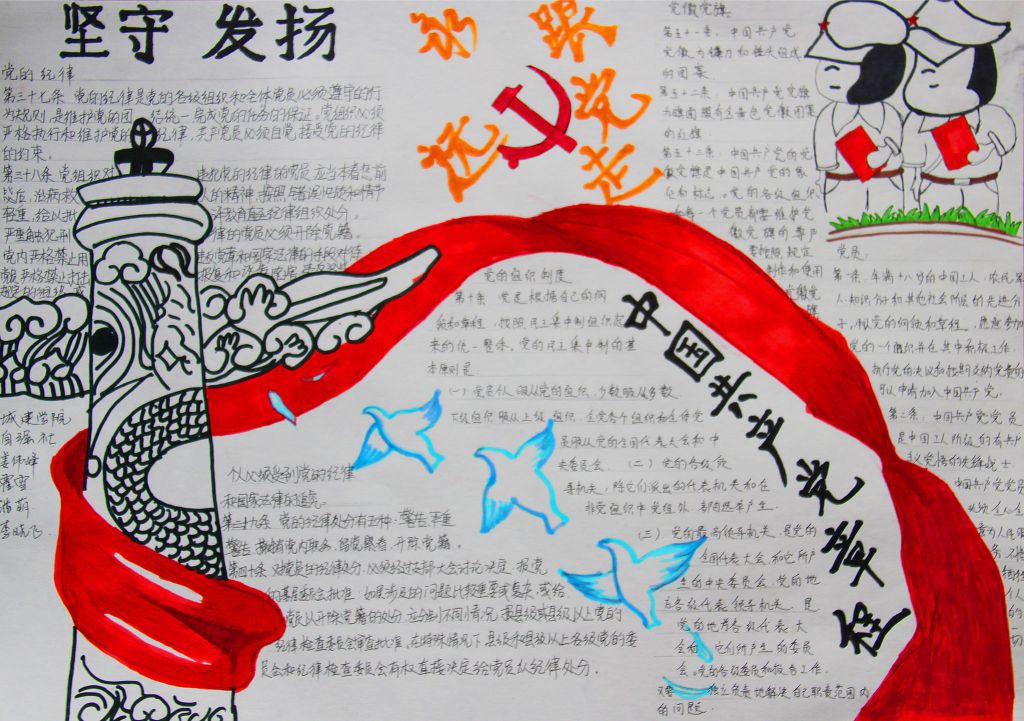 坚守 发扬
永跟
党
走
党的纪律
第三十七条 党的纪律是党的各级组织和全体党员必须遵守的行
为规则,是维护党的团
结统一 完成党的任务的保证。党组织必须
严格执行和维护党的
纪律,共产党员必须自觉接受党的纪律
的约束。
第三十八条 党组织对
违犯党的纪律的党员,应当本着惩前
毖后、治病救
人的精神,按照错误性质和情节
轻重,给以批
评教育直至纪律
处分。
严重触犯刑
律的党员必须开除党籍。
党内严格禁止用
违反党章和国家法律的手段对待
党员,严格禁止打击
报复和
城建学院
自强社
党的组织制度
第十条 党是根据自己的纲
领和章程,按照民主集中制组织起
来的统一整体。党的民主集中制的基
本原则是:
(一)党员个人服从党的组织,少数服从多数,
下级组织服从上级组织,全党各个组织和全体党
员服从党的全国代表大会和中
央委员会。(二)党的各级领
导机关,除它们派出的代表机关和在
非党组织中党组外,都由选举产生。
(三)党的最高领导机关,是党的
全国代表大会和它所产
生的中央委员会。党的地
方各级代表领导机关,是
党的地方各级代表大
会和它们所产生的委员
会。党的各级委员
工作,
独立负责地解决自己职责范围内
的问题.
个人必须受到党的纪律
和国家法律的追究。
第三十九条 党的纪律处分有五种:警告、严重
警告、撤销党内职务、留党察看、开除党籍。
第四十条 对党员的纪律处分,必须经过支部大会讨论决定,报党
的基层委员会批准;如果涉及的问题比较重要或复杂,或给
党员以开除党籍的处分,应分别不同情况,报县级或县级以上党的
纪律检查委员会审查批准。在特殊情况下,县级和县级以上各级党的委
员会和纪律检查委员会有权直接决定给党员以纪律处分。
中国共产党章程
党徽党旗
第五十一条:中国共产党
党徽为镰刀和锤头组成
的图案
第五十二条:中国共产党党旗
为旗面
黄色党徽图案
的红旗.
第五十三条:中国共产党的党
徽党旗是中国共产党的象
征和标志。党的各级组织
和每一个党员都要维护党
徽党旗的尊严
要按照规定
制作和使用
党徽党
旗
党员:
第一条:年满十八岁的中国工人、农民、军
人、知识分子和其他社会阶层的先进分
子,承认党的纲领和章程,愿意参加
党的一个组织并在其中积极工作、
执行党的决议和按期交纳党费的
可以申请加入中国共产党.
第二条:中国共产党党员
是中国工人阶级的有共产
主义觉悟的先锋战士.
中国共产党党员